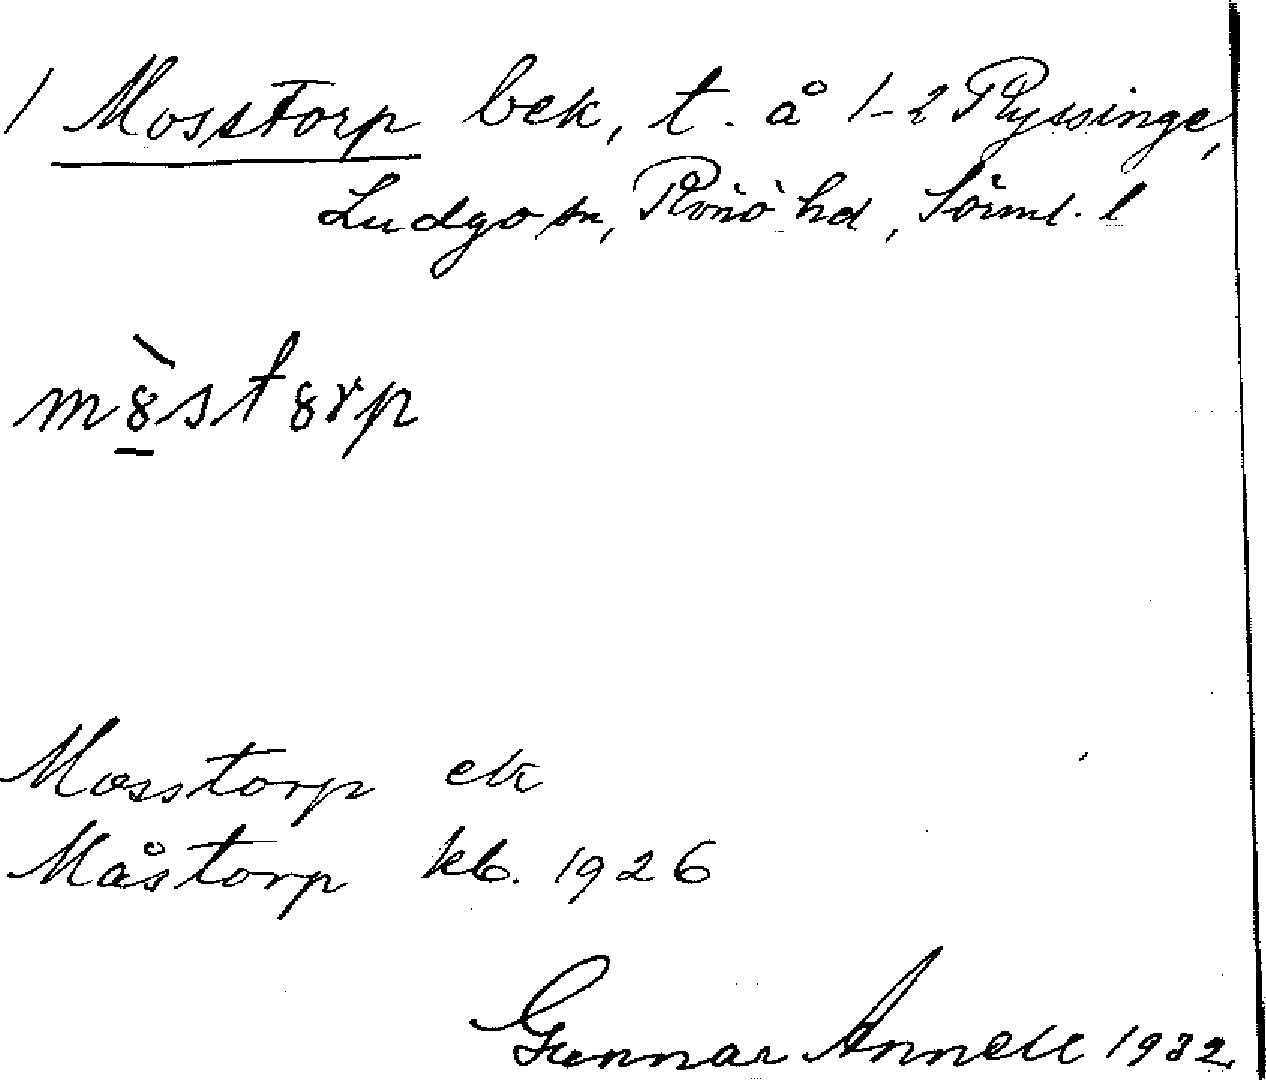 1 Mosstorp bek, t. å 1-2 Ryssinge,
Ludgo sn, Rönö hd, Sörml. l
m8̠̀st8rp
Mosstorp ek
Måstorp kb. 1926
Gunnar Annell 1932